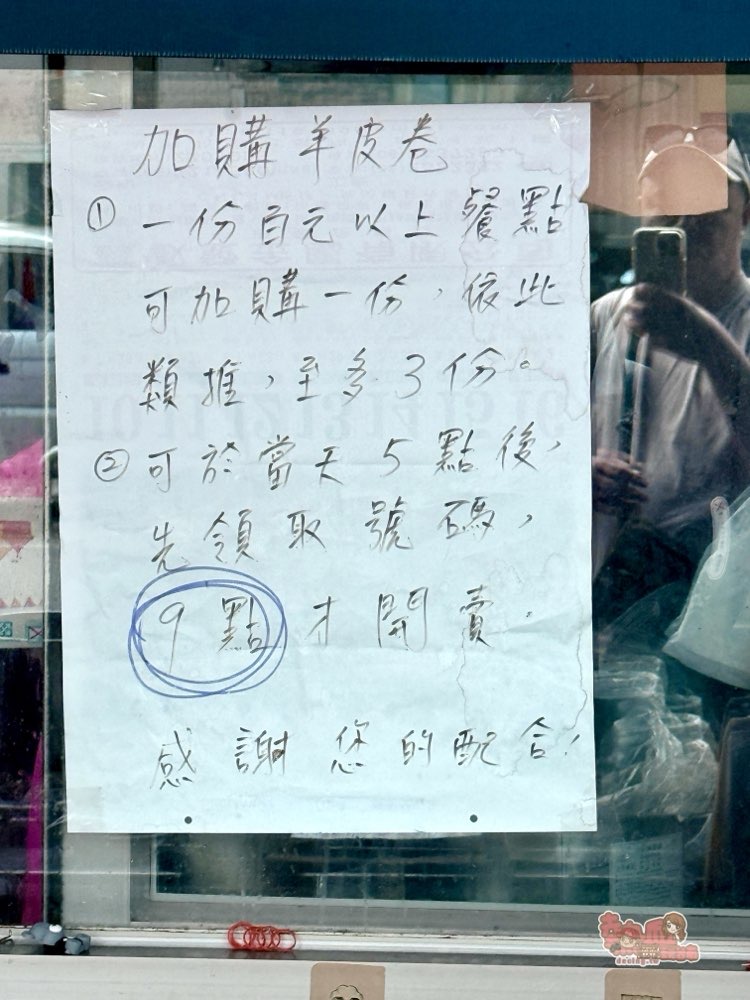 加購羊皮卷
① 一份百元以上餐點
可加購一份，依此
類推，至多3份。
② 可於當天5點後，
先領取號碼，
9點才開賣.
感謝您的配合!
decing.tw